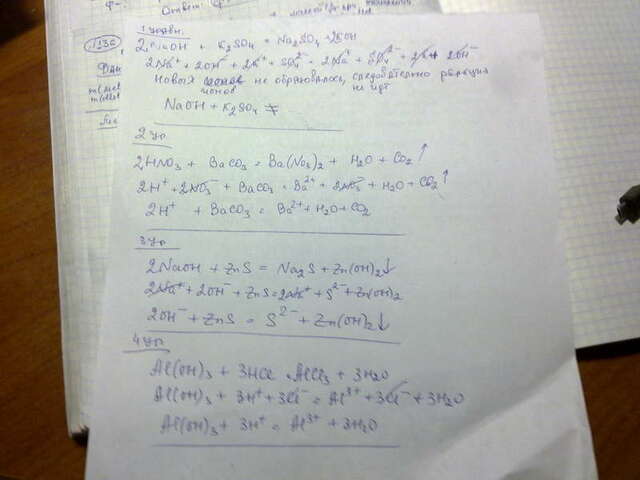 Ответ:
1 уравн.
2NaOH + K₂SO₄ = Na₂SO₄ + 2KOH
2Na⁺ + 2OH⁻ + 2K⁺ + SO₄²⁻ = 2Na⁺ + SO₄²⁻ + 2K⁺ 2OH⁻
Новых ионов не образовалось, следовательно реакция
не идт
NaOH + K₂SO₄ ≠
2 ур
2HNO₃ + BaCO₃ = Ba(NO₃)₂ + H₂O + CO₂↑
2H⁺ + 2NO₃⁻ + BaCO₃ = Ba²⁺ + 2NO₃⁻ + H₂O + CO₂↑
2H⁺ + BaCO₃ = Ba²⁺ + H₂O + CO₂
3 ур
2NaOH + ZnS = Na₂S + Zn(OH)₂↓
2Na⁺ + 2OH⁻ + ZnS = 2Na⁺ + S²⁻ + Zn(OH)₂
2OH⁻ + ZnS = S²⁻ + Zn(OH)₂↓
4 ур
Al(OH)₃ + 3HCl = AlCl₃ + 3H₂O
Al(OH)₃ + 3H⁺ + 3Cl⁻ = Al³⁺ + 3Cl⁻ + 3H₂O
Al(OH)₃ + 3H⁺ = Al³⁺ + 3H₂O